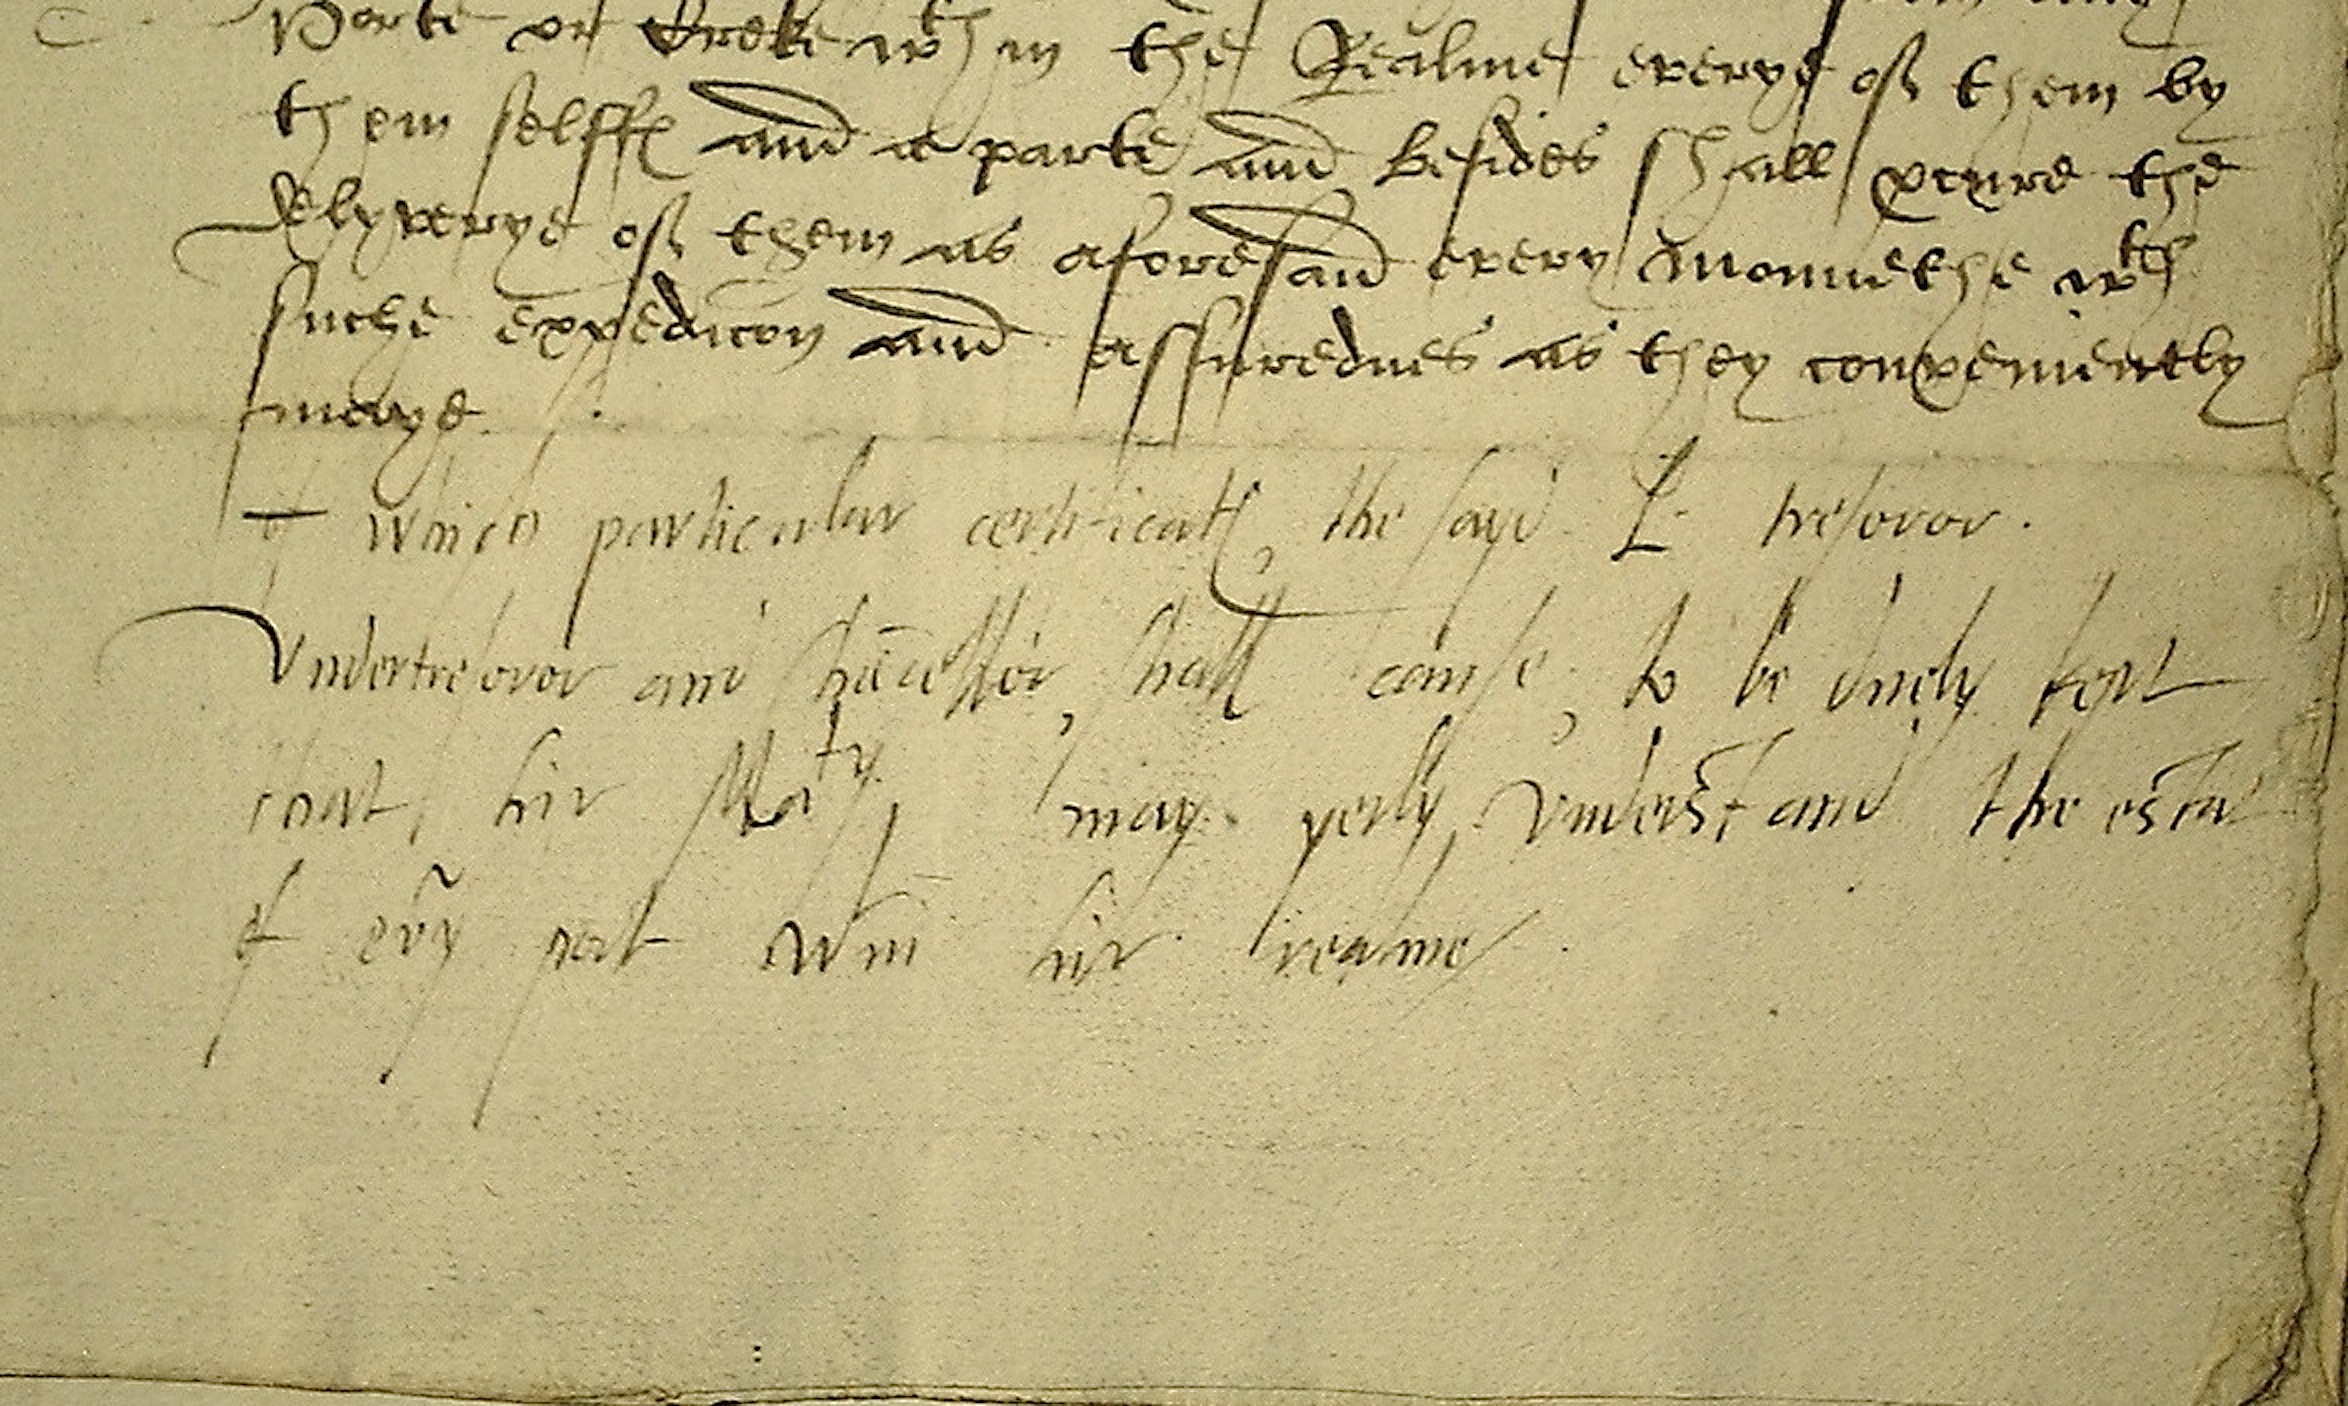 Porte or Creke wth in the Realme everye of them by
them selffe and a parte and besides shall pcure the
delyverye of them as aforesaid every Monnethe wth
suche expedicon and assurednes as they conveniently
maye.
which particular certificat, the sayd L. tresoror.
Undertresoror and chācellor, shall cause, to be duely kept
that, hir Maty, may yerly, understand the estat
of ev̄y port wtin hir realme.